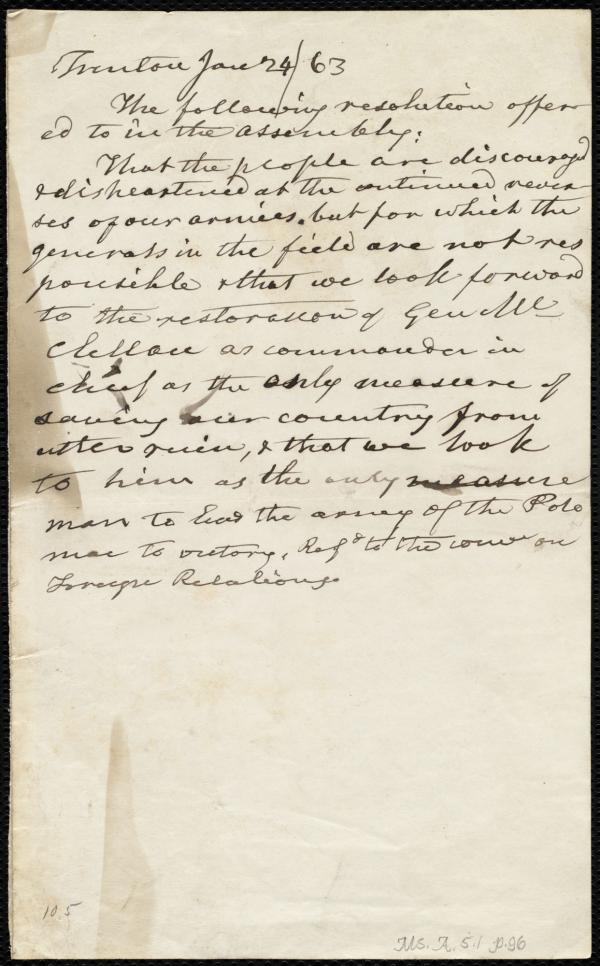 Trenton Jan 24/63
The following resolution offer
ed to in the assembly:
That the people are discouraged
& disheartened at the continued rever
ses of our armies, but for which the
generals in the field are not res
ponsible & that we look forward
to the restoration of Gen Mc
Clellan as commander in
chief as the only measure of
saving our country from
utter ruin, & that we look
to him as the only measure
man to lead the army of the Poto
mac to victory. Refd to the comee on
Foreign Relations
10.5
Ms. A. 5.1 p.96